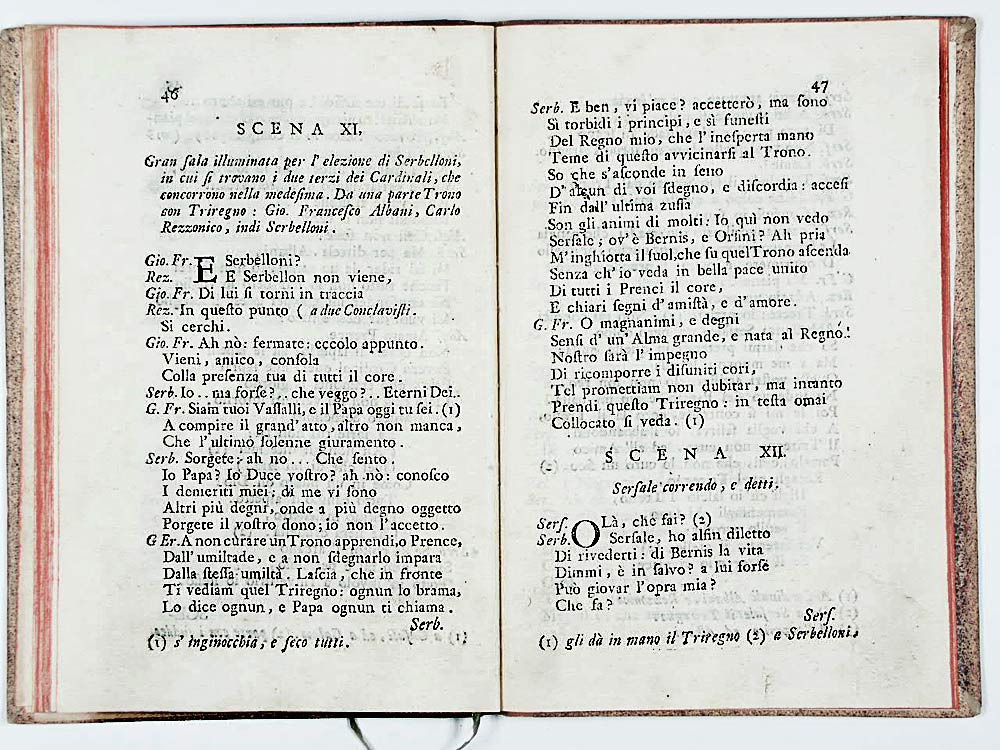 46
SCENA XI.
Gran ſala illuminata per l' elezione di Serbelloni,
in cui ſi trovano i due terzi dei Cardinali, che
concorrono nella medeſima. Da una parte Trono
con Triregno: Gio. Franceſco Albani, Carlo
Rezzonico, indi Serbelloni.
Gio. Fr. E Serbelloni?
Rez. E Serbellon non viene,
Gio. Fr. Di lui ſi torni in traccia
Rez. In queſto punto ( a due Conclaviſti.
Si cerchi.
Gio. Fr. Ah nò: fermate: eccolo appunto.
Vieni, amico, conſola
Colla preſenza tua di tutti il core.
Serb. Io.. ma forſe?.. che veggo?.. Eterni Dei..
G. Fr. Siam tuoi Vaſſalli, e il Papa oggi tu ſei. (1)
A compire il grand'atto, altro non manca,
Che l'ultimo ſolenne giuramento.
Serb. Sorgete; ah no... Che ſento.
Io Papa? Io Duce voſtro? ah nò: conoſco
I demeriti miei; di me vi ſono
Altri più degni, onde a più degno oggetto
Porgete il voſtro dono; io non l'accetto.
G Fr. A non curare un Trono apprendi, o Prence,
Dall'umiltade, e a non sdegnarlo impara
Dalla ſteſſa umiltà. Laſcia, che in fronte
Ti vediam quel Triregno: ognun lo brama,
Lo dice ognun, e Papa ognun ti chiama.
Serb.
(1) s' inginocchia, e ſeco tutti.
47
Serb. E ben, vi piace? accetterò, ma ſono
Sì torbidi i principi, e sì funeſti
Del Regno mio, che l'ineſperta mano
Teme di queſto avvicinarſi al Trono.
So che s'aſconde in ſeno
D'alcun di voi ſdegno, e diſcordia: acceſi
Fin dall'ultima zuffa
Son gli animi di molti: Io quì non vedo
Serſale, ov'è Bernis, e Orſini? Ah pria
M'inghiotta il ſuol, che ſu quel Trono aſcenda
Senza ch'io veda in bella pace unito
Di tutti i Prenci il core,
E chiari ſegni d'amiſtà, e d'amore.
G. Fr. O magnanimi, e degni
Senſi d' un'Alma grande, e nata al Regno!
Noſtro ſarà l'impegno
Di ricomporre i diſuniti cori,
Tel promettiam non dubitar, ma intanto
Prendi queſto Triregno: in teſta omai
Collocato ſi veda. (1)
SCENA XII.
Serſale correndo, e detti.
Serſ. OLà, che fai? (2)
Serb. Serſale, ho alfin diletto
Di rivederti: di Bernis la vita
Dimmi, è in ſalvo? a lui forſe
Può giovar l'opra mia?
Che fa?
Serſ.
(1) gli dà in mano il Triregno (2) a Serbelloni.